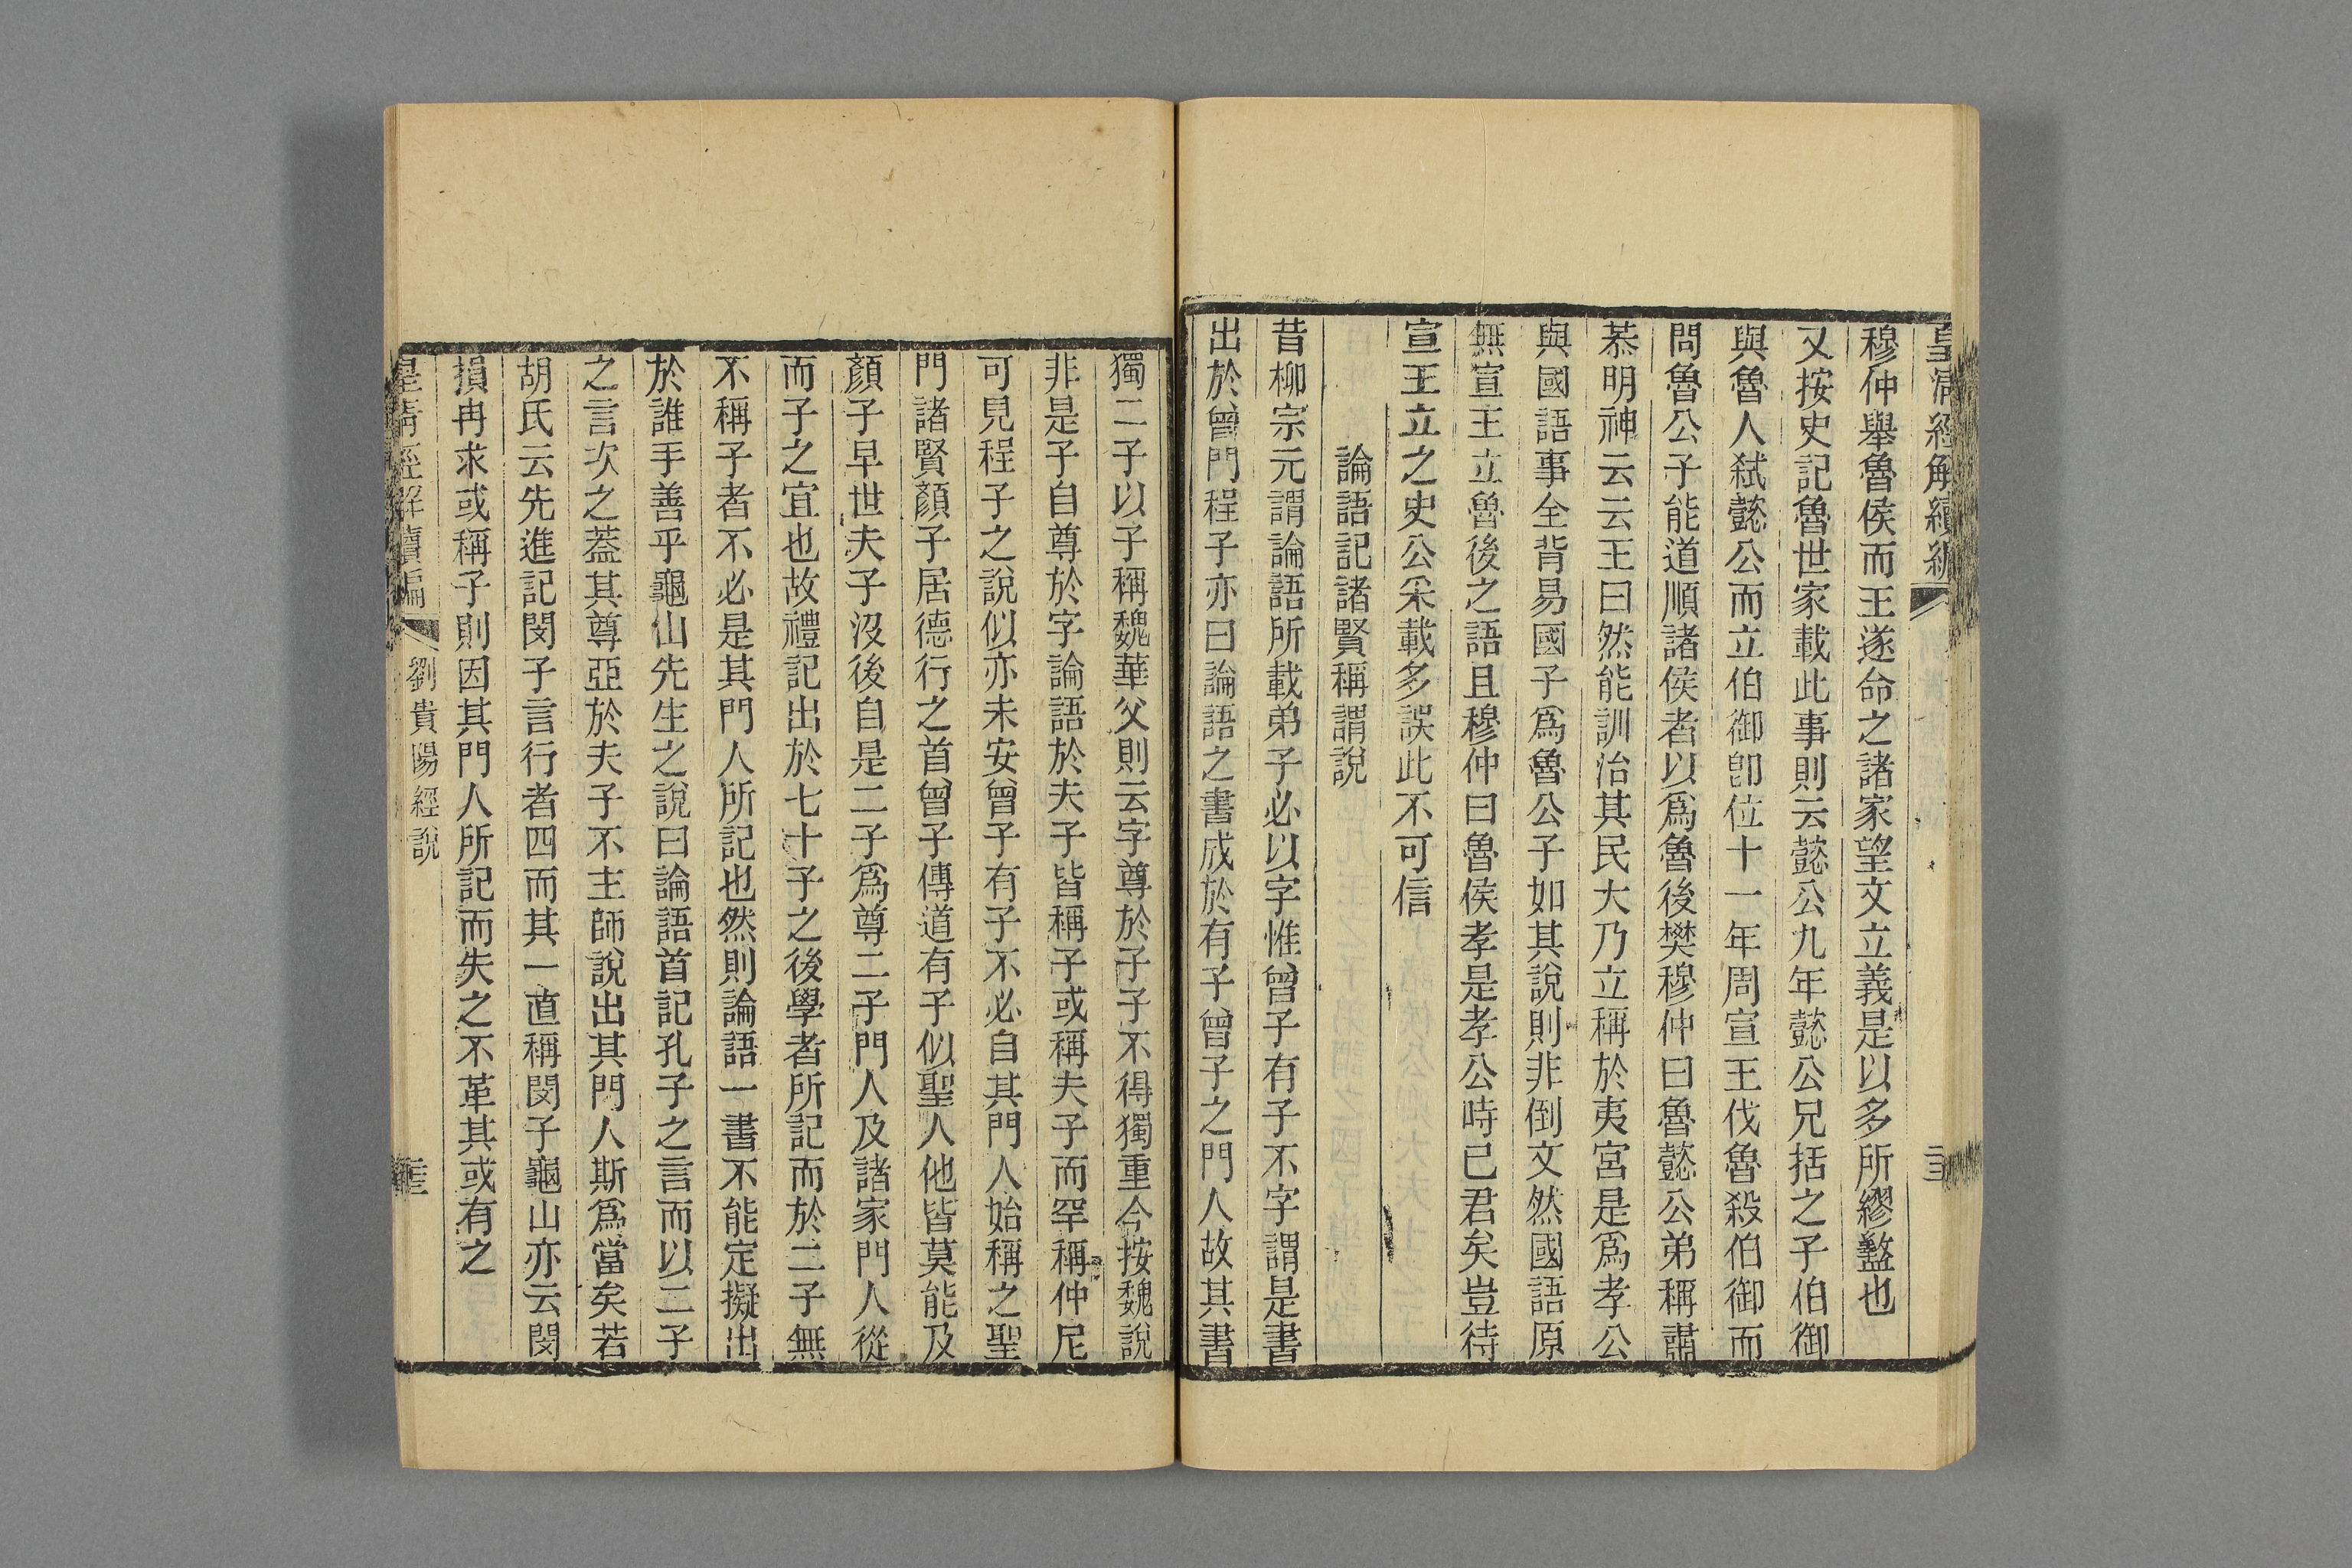 皇清經解續編
穆仲舉魯侯而王遂命之諸家望文立義是以多所繆盭也
又按史記魯世家載此事則云懿公九年懿公兄括之子伯御
與魯人弒懿公而立伯御卽位十一年周宣王伐魯殺伯御而
問魯公子能道順諸侯者以爲魯後樊穆仲曰魯懿公弟稱肅
恭明神云云王曰然能訓治其民大乃立稱於夷宮是爲孝公
與國語事全背易國子爲魯公子如其說則非倒文然國語原
無宣王立魯後之語且穆仲曰魯侯孝是孝公時已君矣豈待
宣王立之史公采載多誤此不可信
論語記諸賢稱謂說
昔柳宗元謂論語所載弟子必以字惟曾子有子不字謂是書
出於曾門程子亦曰論語之書成於有子曾子之門人故其書
獨二子以子稱魏華父則云字尊於子子不得獨重今按魏說
非是子自尊於字論語於夫子皆稱子或稱夫子而罕稱仲尼
可見程子之說似亦未安曾子有子不必自其門人始稱之聖
門諸賢顏子居德行之首曾子傳道有子似聖人他皆莫能及
顏子早世夫子沒後自是二子爲尊二子門人及諸家門人從
而子之宜也故禮記出於七十子之後學者所記而於二子無
不稱子者不必是其門人所記也然則論語一書不能定擬出
於誰手善乎龜山先生之說曰論語首記孔子之言而以二子
之言次之蓋其尊亞於夫子不主師說出其門人斯爲當矣若
胡氏云先進記閔子言行者四而其一直稱閔子龜山亦云閔
損冉求或稱子則因其門人所記而失之不革其或有之
皇清經解續編 劉貴陽經說